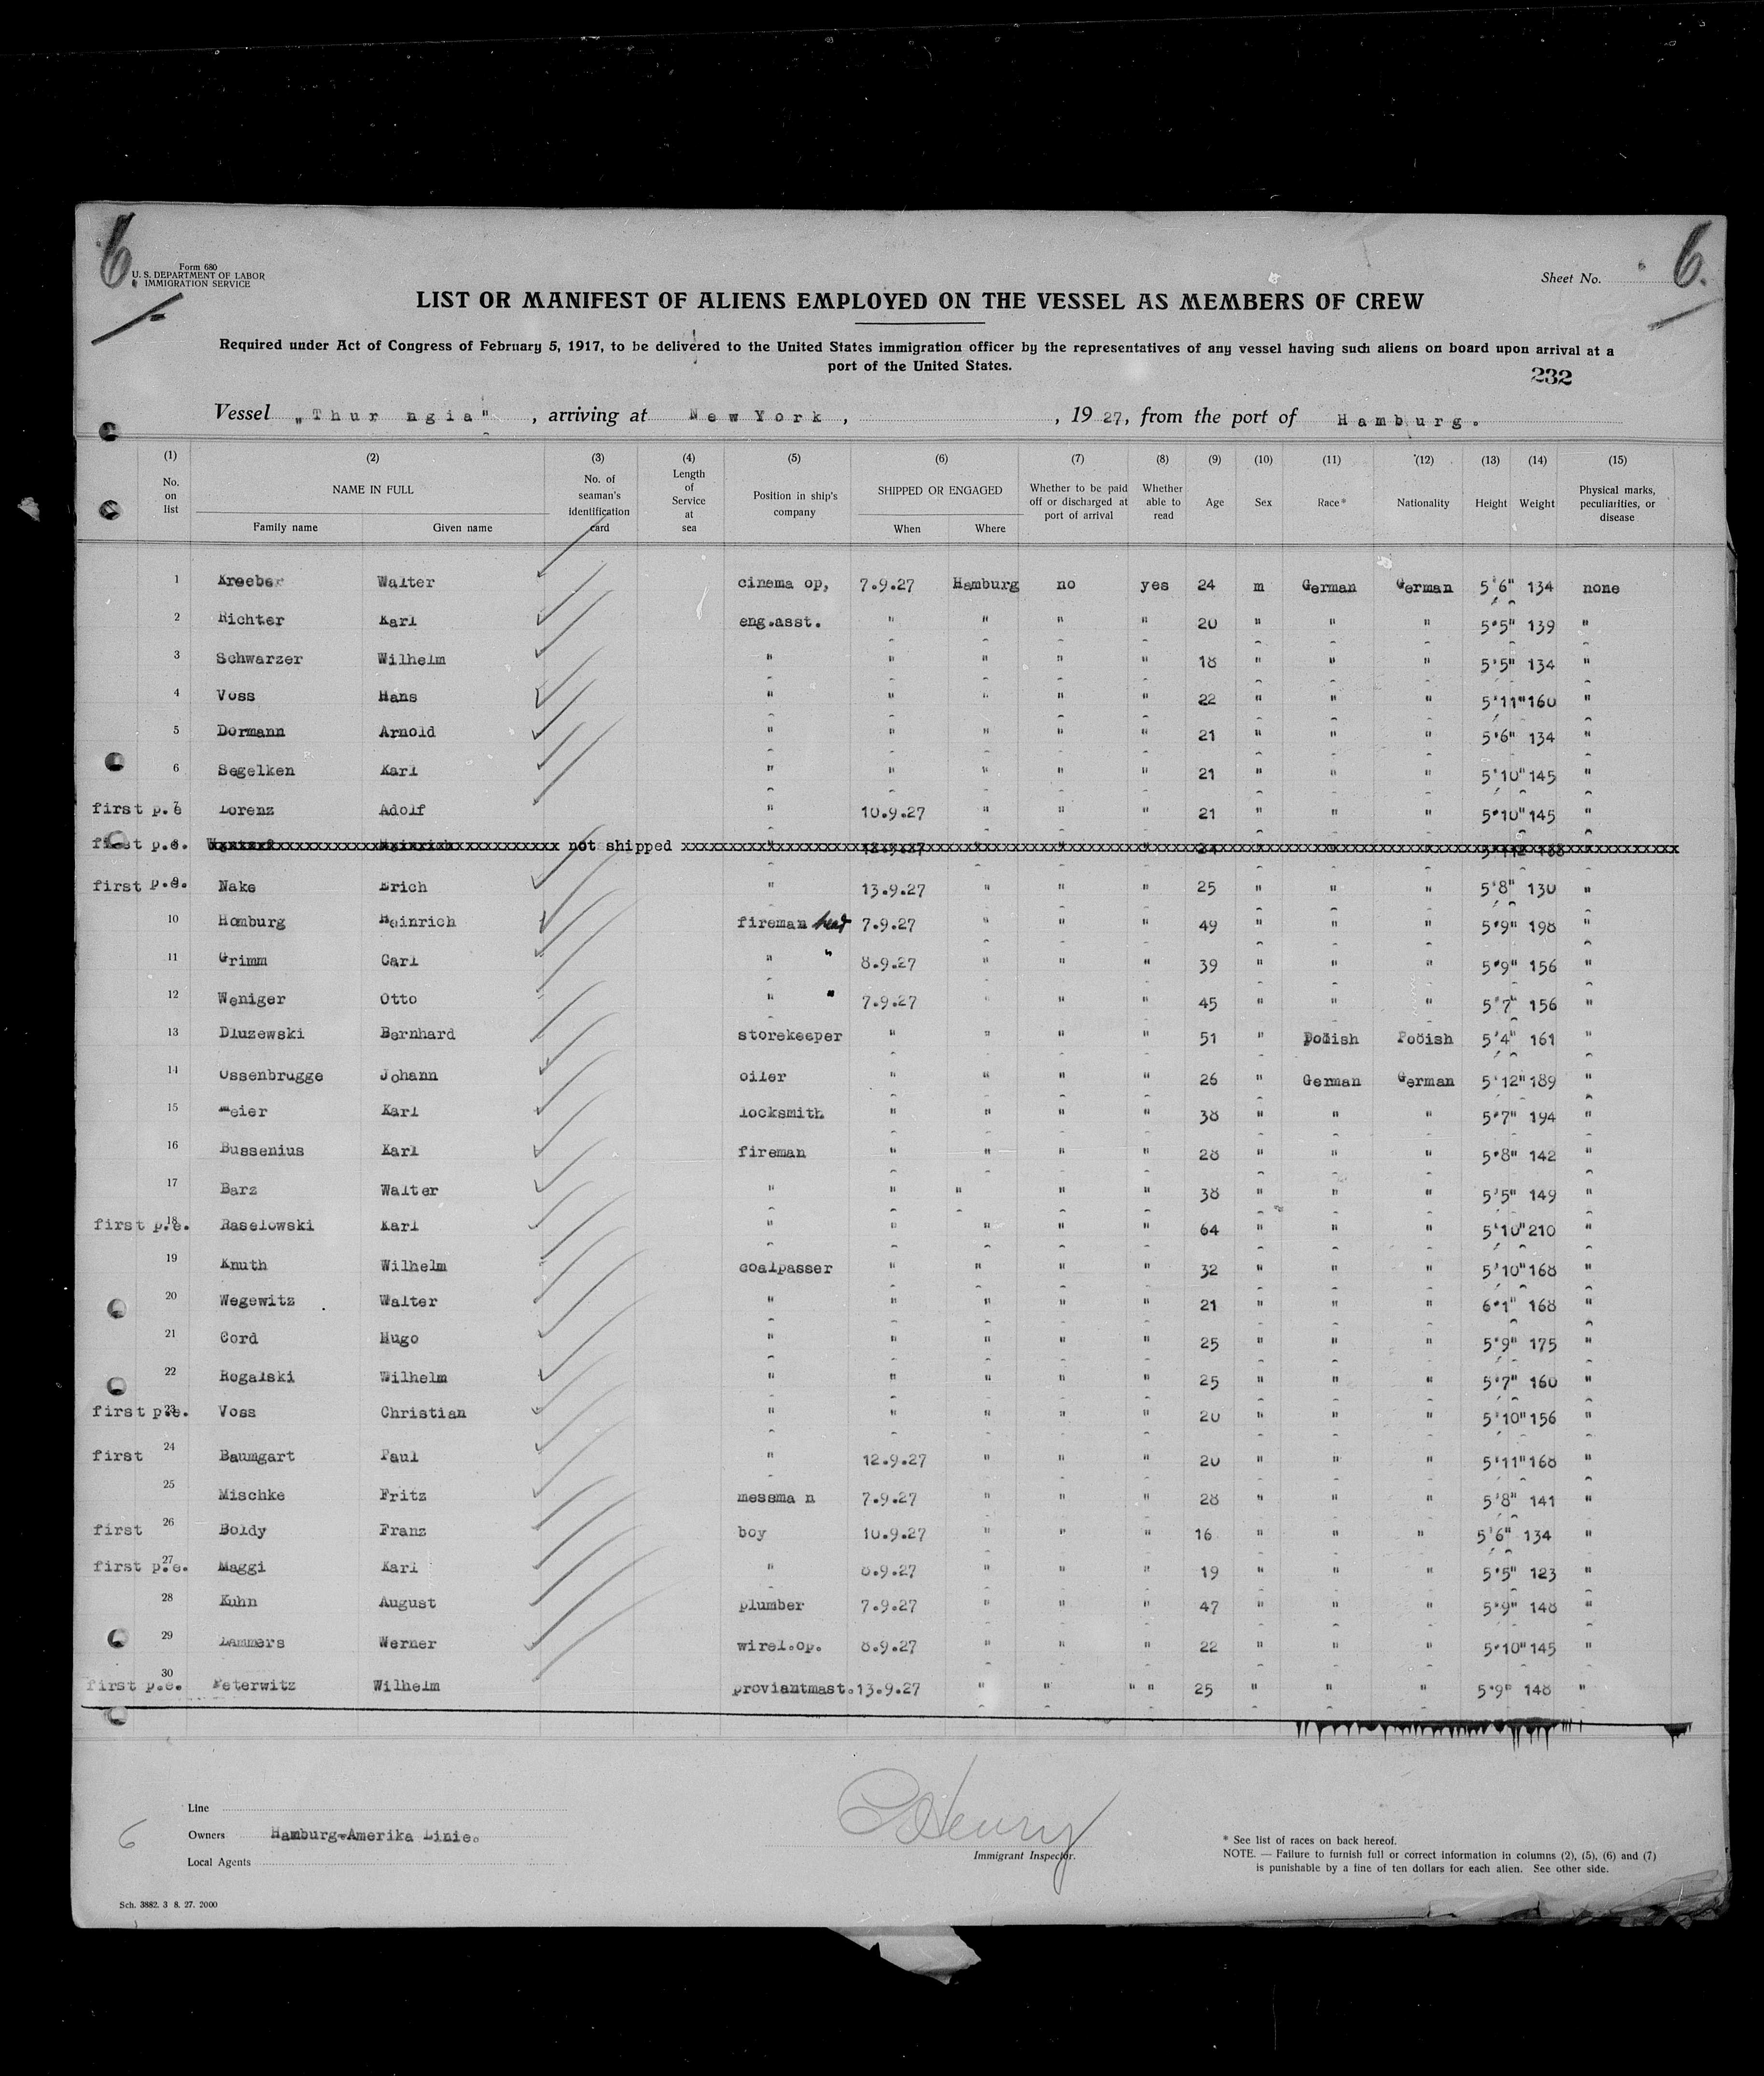 6. 6.
Form 680
U. S. DEPARTMENT OF LABOR
IMMIGRATION SERVICE
Sheet No.
LIST OR MANIFEST OF ALIENS EMPLOYED ON THE VESSEL AS MEMBERS OF CREW
Required under Act of Congress of February 5, 1917, to be delivered to the United States immigration officer by the representatives of any vessel having such aliens on board upon arrival at a
port of the United States.
232
Vessel "Thur ngia", arriving at New York, , 1927, from the port of Hamburg.
(1) (2) (3) (4) (5) (6) (7) (8) (9) (10) (11) (12) (13) (14) (15)
No. on list NAME IN FULL Family name Given name No. of seaman's identification card Length of Service at sea Position in ship's company SHIPPED OR ENGAGED When Where Whether to be paid off or discharged at port of arrival Whether able to read Age Sex Race* Nationality Height Weight Physical marks, peculiarities, or disease
1 Kreeber Walter cinema op, 7.9.27 Hamburg no yes 24 m German German 5'6" 134 none
2 Richter Karl eng.asst. " " " " 20 " " " 5'5" 139 "
3 Schwarzer Wilhelm " " " " " 18 " " " 5'5" 134 "
4 Voss Hans " " " " " 22 " " " 5'11" 160 "
5 Dormann Arnold " " " " " 21 " " " 5'6" 134 "
6 Segelken Karl " " " " " 21 " " " 5'10" 145 "
first p.e 7 Lorenz Adolf " 10.9.27 " " " 21 " " " 5'10" 145 "
first p.e. 8 Heinrich not shipped
first p.e. 9 Nake Erich " 13.9.27 " " " 25 " " " 5'8" 130 "
10 Homburg Heinrich fireman head 7.9.27 " " " 49 " " " 5'9" 198 "
11 Grimm Carl " " 8.9.27 " " " 39 " " " 5'9" 156 "
12 Weniger Otto " " 7.9.27 " " " 45 " " " 5'7" 156 "
13 Dluzewski Bernhard storekeeper " " " " 51 " Polish Polish 5'4" 161 "
14 Ossenbrugge Johann oiler " " " " 26 " German German 5'12" 189 "
15 Meier Karl locksmith " " " " 38 " " " 5'7" 194 "
16 Bussenius Karl fireman " " " " 28 " " " 5'8" 142 "
17 Barz Walter " " " " " 38 " " " 5'5" 149 "
first p.e. 18 Raselowski Karl " " " " " 64 " " " 5'10" 210 "
19 Knuth Wilhelm coalpasser " " " " 32 " " " 5'10" 168 "
20 Wegewitz Walter " " " " " 21 " " " 6'1" 168 "
21 Cord Hugo " " " " " 25 " " " 5'9" 175 "
22 Rogalski Wilhelm " " " " " 25 " " " 5'7" 160 "
first p.e. 23 Voss Christian " " " " " 20 " " " 5'10" 156 "
first 24 Baumgart Paul " 12.9.27 " " " 20 " " " 5'11" 168 "
25 Mischke Fritz messma n 7.9.27 " " " 28 " " " 5'8" 141 "
first 26 Boldy Franz boy 10.9.27 " " " 16 " " " 5'6" 134 "
first p.e. 27 Maggi Karl " 8.9.27 " " " 19 " " " 5'5" 123 "
28 Kuhn August plumber 7.9.27 " " " 47 " " " 5'9" 148 "
29 Lammers Werner wirel.op. 8.9.27 " " " 22 " " " 5'10" 145 "
first p.e. 30 Peterwitz Wilhelm proviantmast. 13.9.27 " " " " 25 " " " 5'9" 148 "
Line
6 Owners Hamburg-Amerika Linie.
Local Agents
Henry
Immigrant Inspector.
* See list of races on back hereof.
NOTE. — Failure to furnish full or correct information in columns (2), (5), (6) and (7)
is punishable by a fine of ten dollars for each alien. See other side.
Sch. 3882. 3 8. 27. 2000